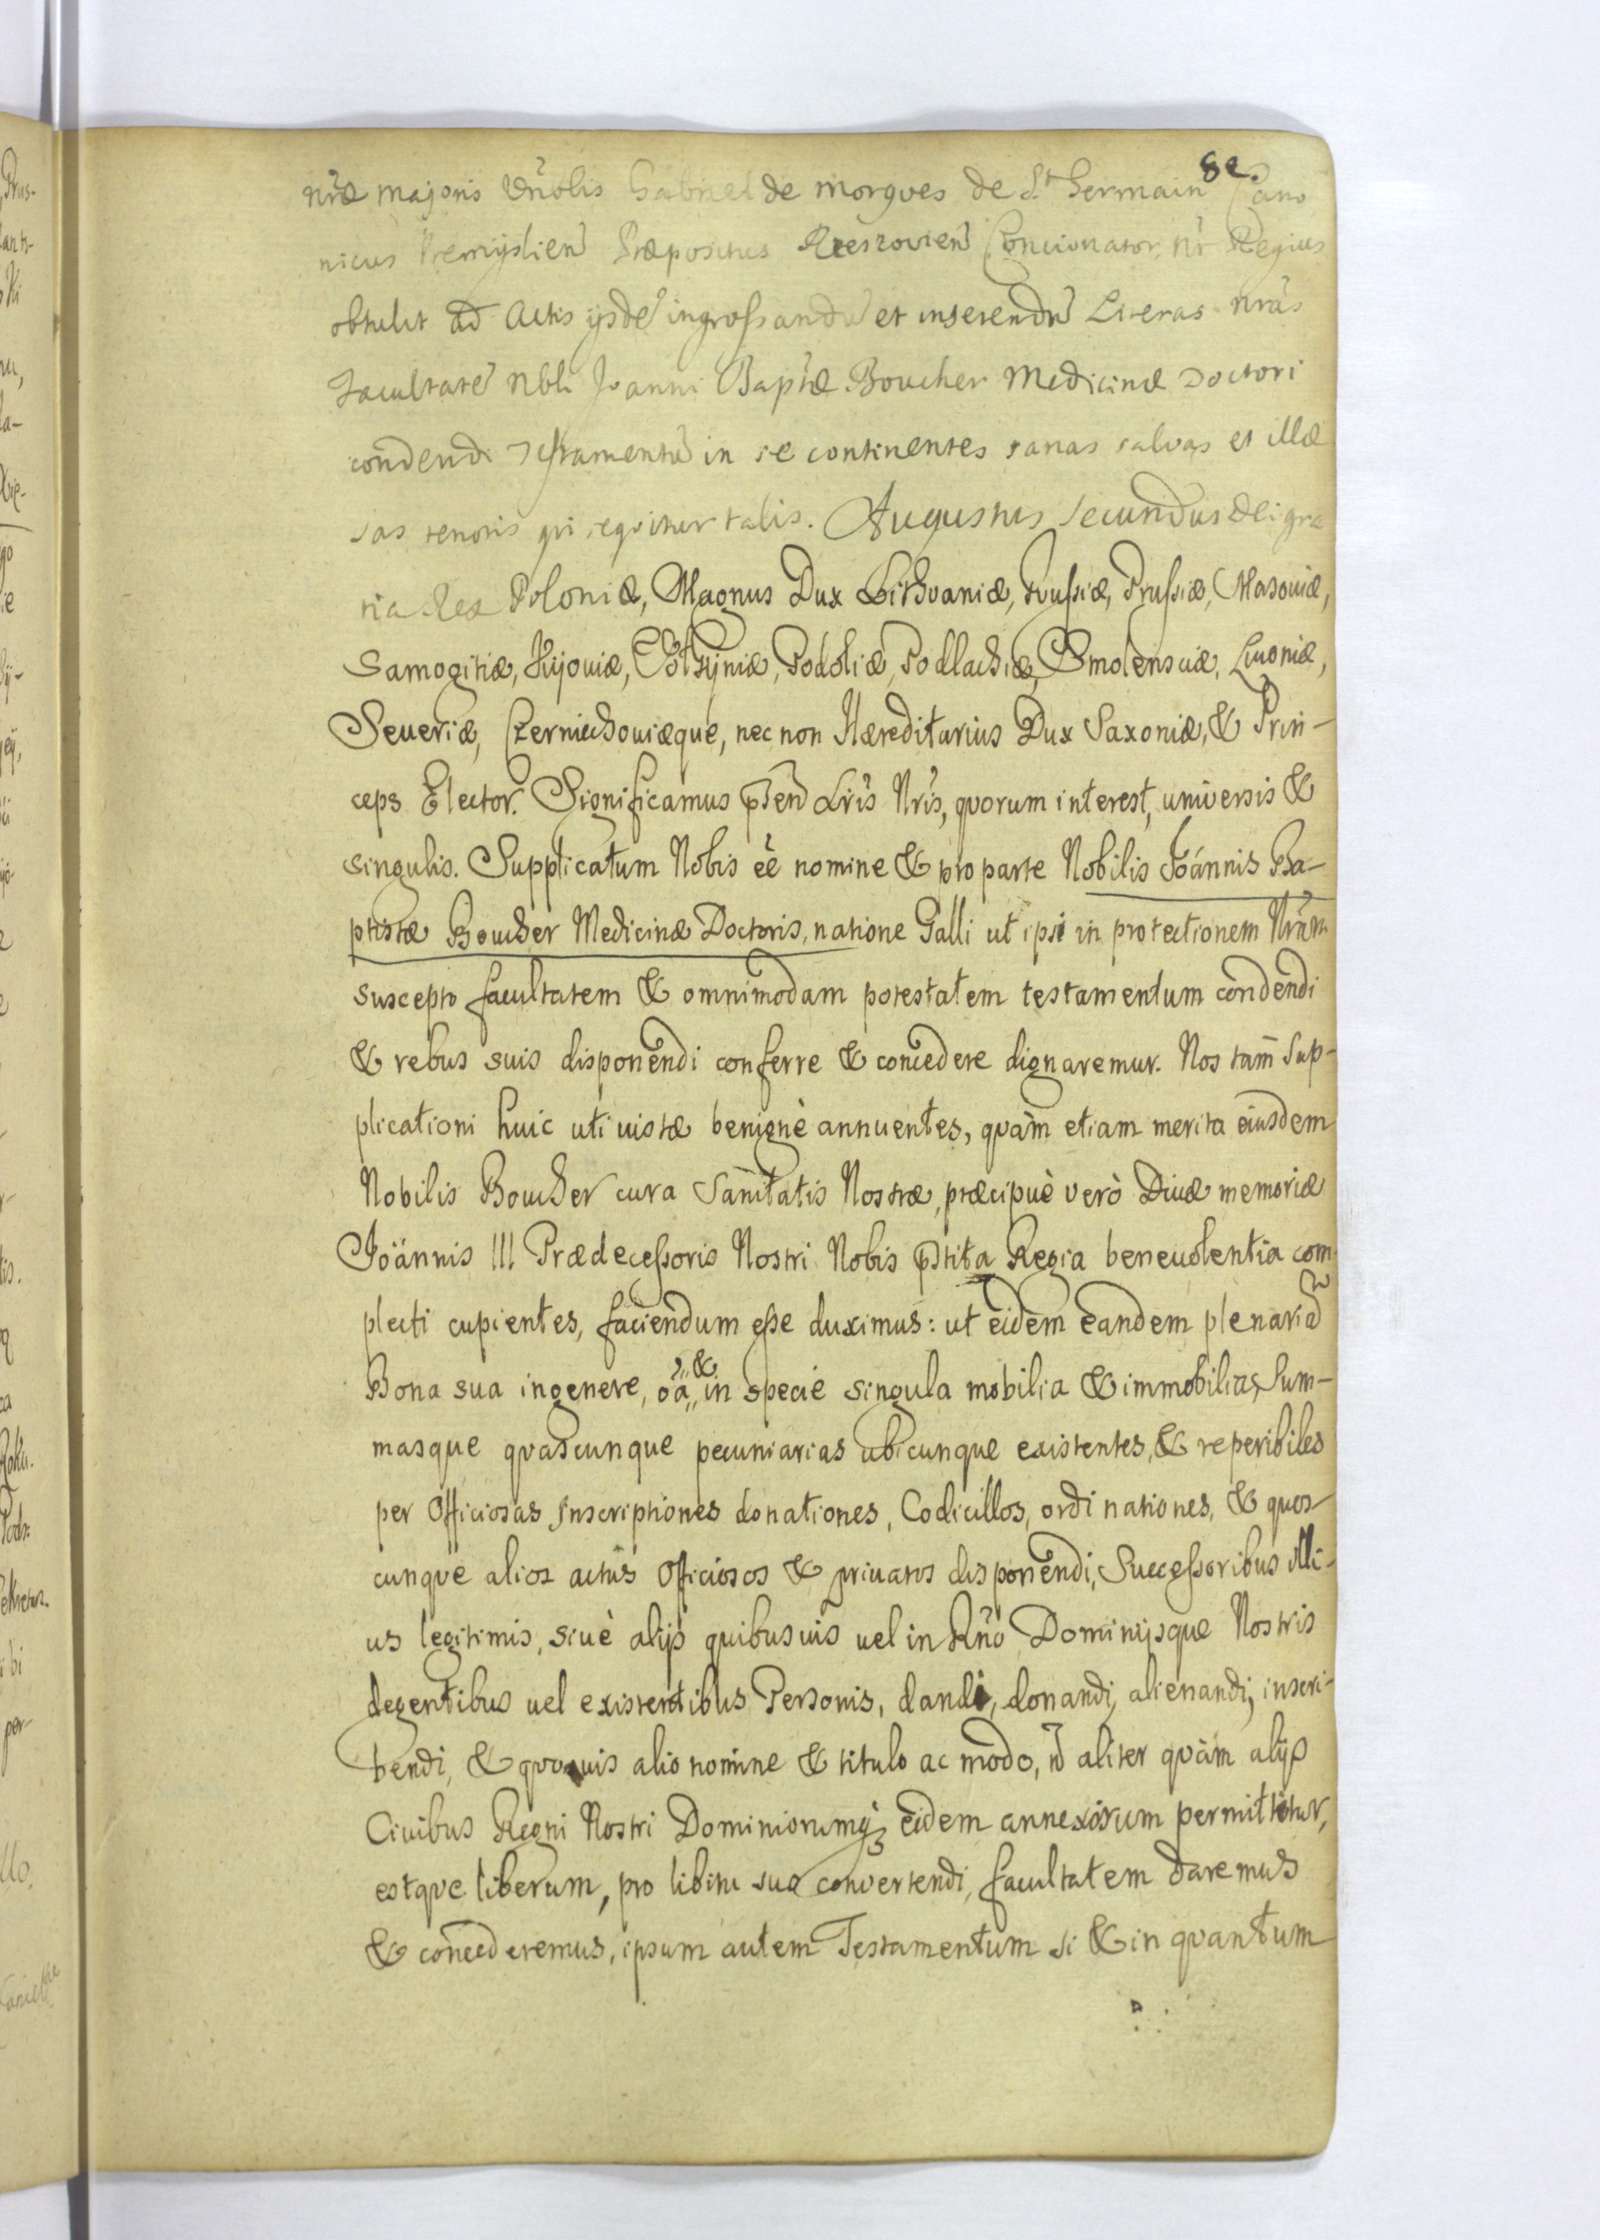 8e.
nræ majoris Vnblis Gabriel de morgves de St Germain Cano
nicus Premÿslien Præpositus Rzeszovien Concionator nr Regius
obtulit ad Actis ijsdē ingrossandū et inserendū Literas nrās
Facultatē Nbli Joanni Baptæ Boucher Medicinæ Doctori
condendi Testamentū in se continentes sanas salvas et illæ
sas tenoris qui seqvitur talis. Augustus Secundus Dei gra
tia Rex Poloniæ, Magnus Dux Lithvaniæ, Russiæ, Prussiæ, Masoviæ,
Samogitiæ, Kijoviæ, Volhÿniæ, Podoliæ, Podlachiæ, Smolensciæ, Livoniæ,
Severiæ, Czerniechoviæque, nec non Hæreditarius Dux Saxoniæ, & Prin-
ceps Elector. Significamus p̄sen Lris Nris, qvorum interest, universis &
singulis. Supplicatum Nobis eē nomine & pro parte Nobilis Joánnis Ba-
ptistæ Boucher Medicinæ Doctoris, natione Galli ut ipsi in protectionem Nrām
suscepto facultatem & omnimodam potestatem testamentum condendi
& rebus suis disponendi conferre & concedere dignaremur. Nos tam̄ Sup-
plicationi huic uti iustæ benignè annuentes, qvàm etiam merita eiusdem
Nobilis Boucher cura Sanitatis Nostræ, præcipuè verò Divæ memoriæ
Joännis III Prædecessoris Nostri Nobis p̄stita Regia benevolentia com-
plecti cupientes, faciendum esse duximus: ut eidem eandem plenariā
Bona sua ingenere, oā & in specie singula mobilia & immobilia, Sum-
masque qvascunque pecuniarias ubicunque existentes, & reperibiles
per Officiosas Inscriptiones donationes, Codicillos, ordinationes, & quos-
cunque alios actus Officiosos & privatos disponendi, Successoribus illi-
us legitimis, sivè alijs quibusvis vel in Rño Dominijsque Nostris
degentibus vel existentibus Personis, dandi, donandi, alienandi, inscri-
bendi, & qvovis alio nomine & titulo ac modo, n̄ aliter qvàm alijs
Civibus Regni Nostri Dominiorumq; eidem annexorum permittitur,
estqve liberum, pro libitu suo convertendi, facultatem daremus
& concederemus, ipsum autem Testamentum si & in qvantum